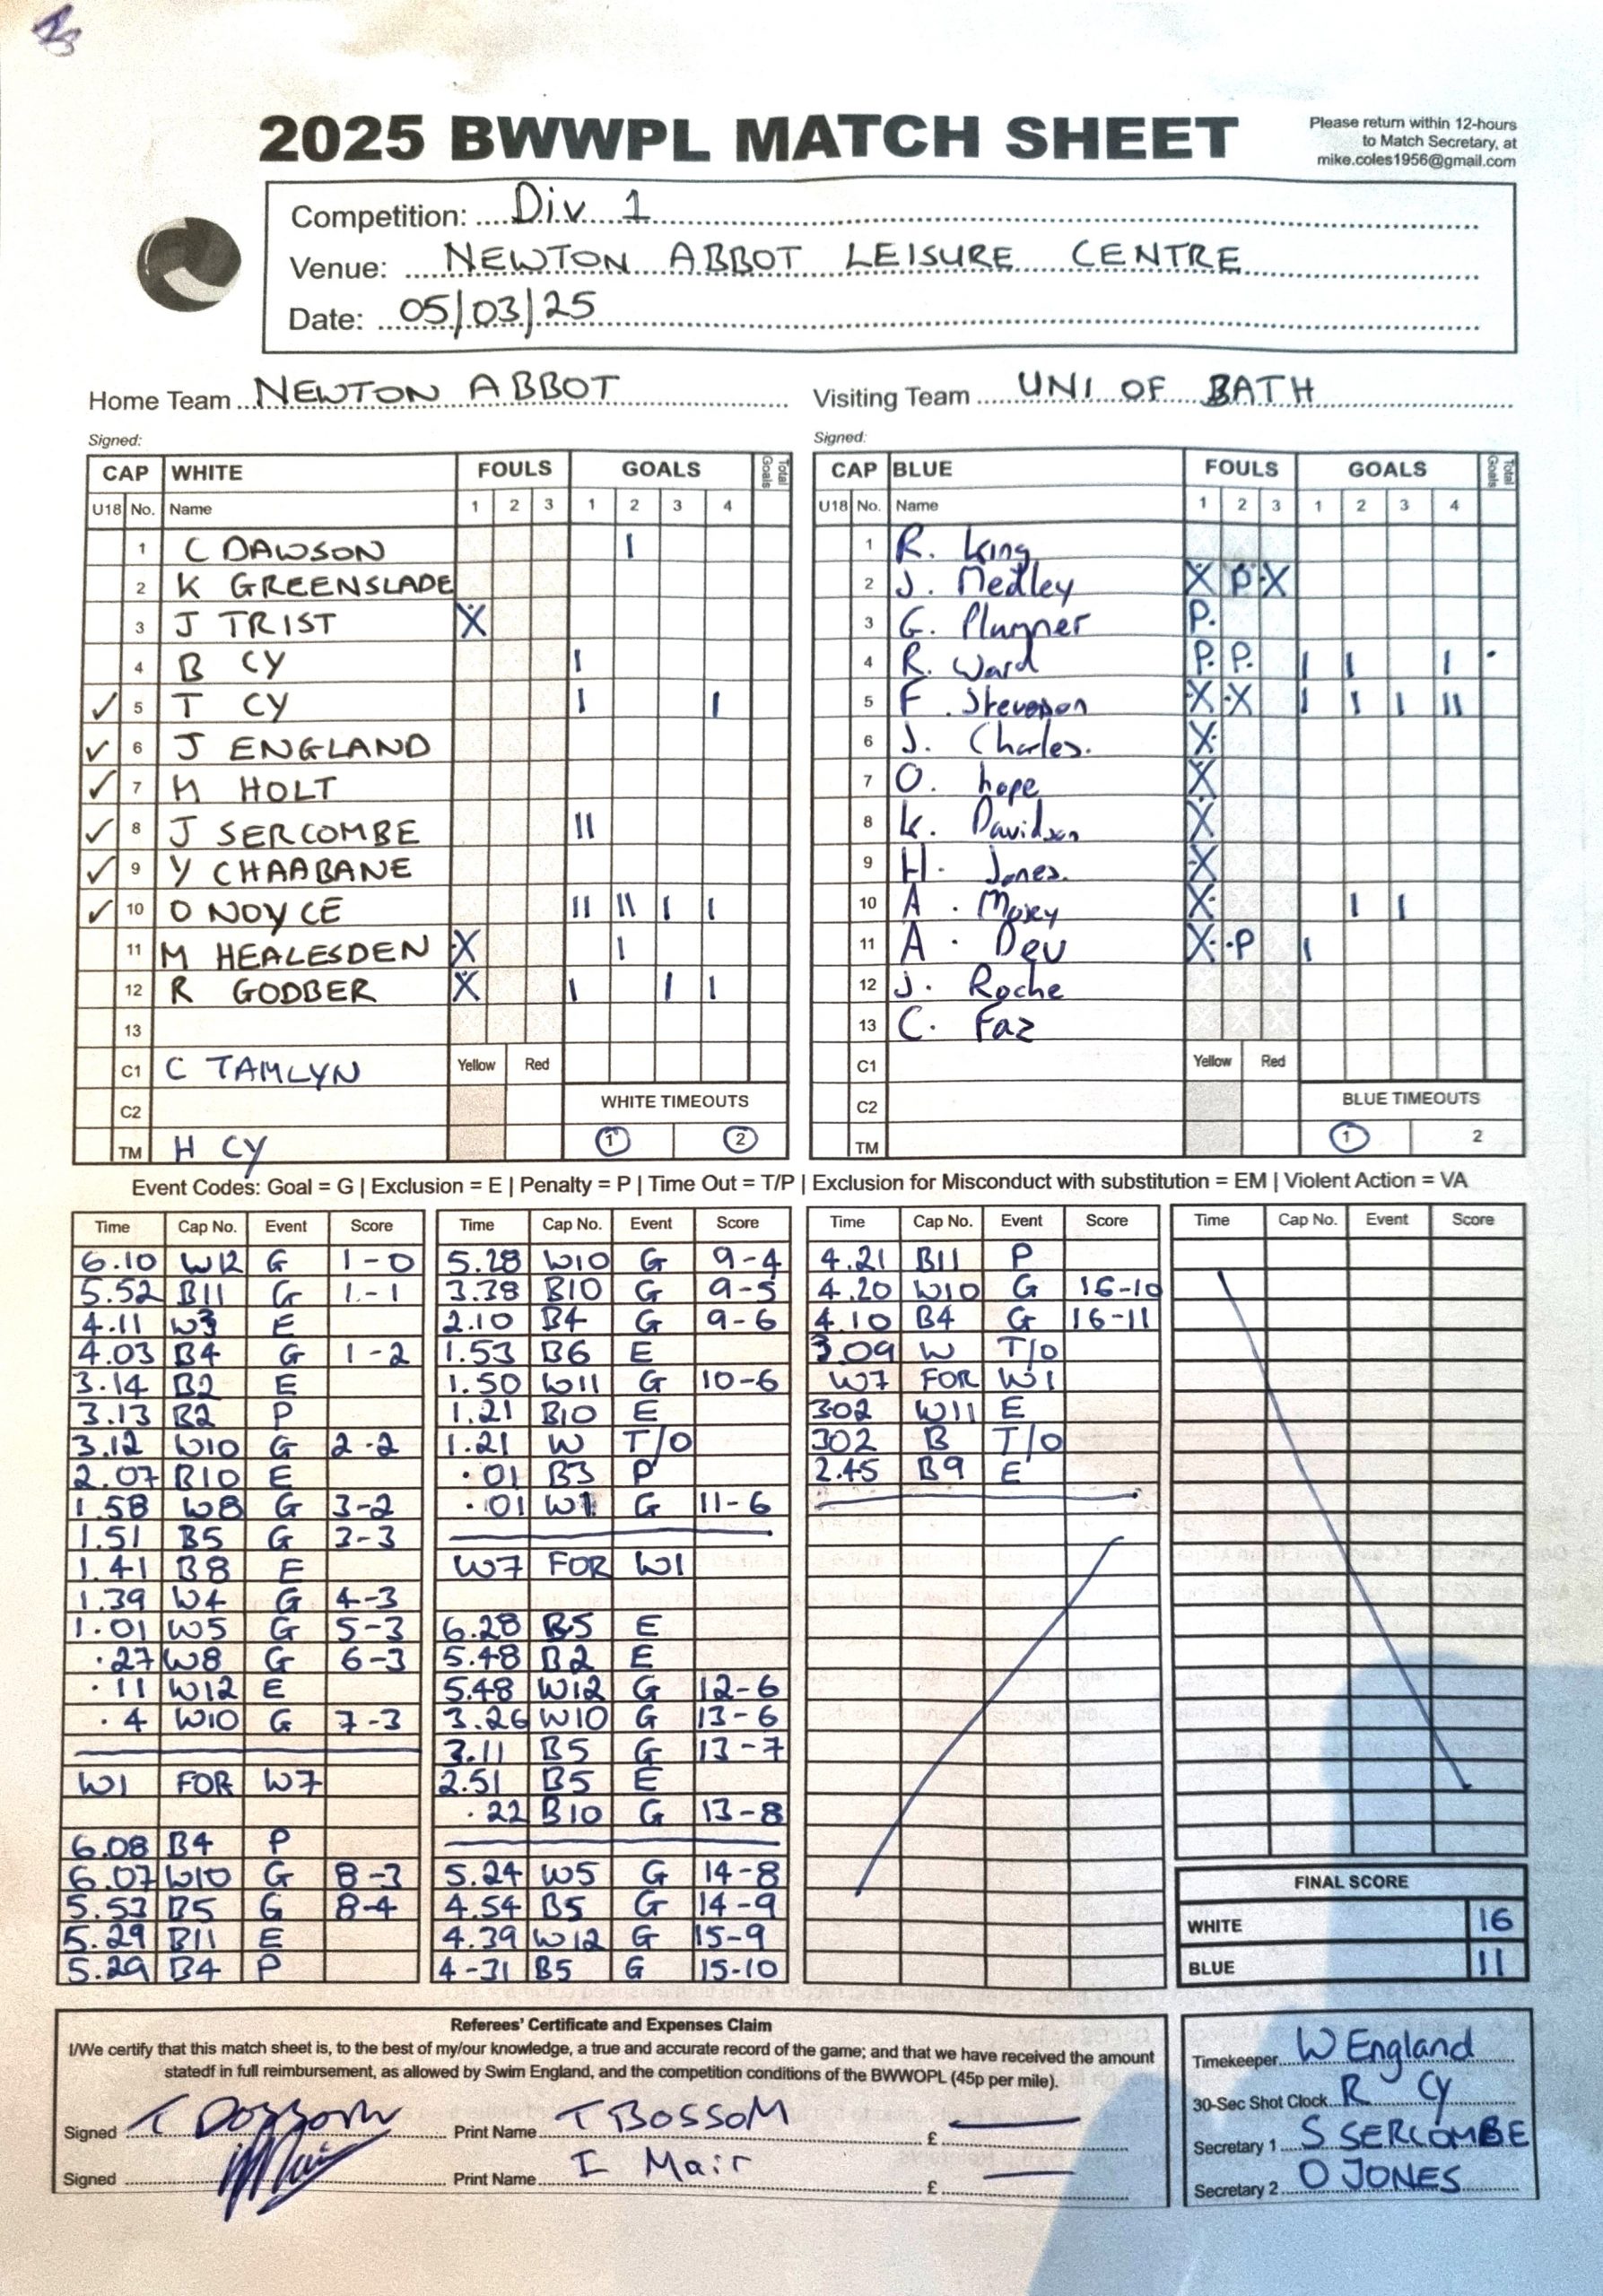 2025 BWWPL MATCH SHEET
Please return within 12-hours
to Match Secretary, at
mike.coles1956@gmail.com
Competition: Div 1
Venue: NEWTON ABBOT LEISURE CENTRE
Date: 05/03/25
Home Team NEWTON ABBOT
Visiting Team UNI OF BATH
Signed:
Signed:
CAP WHITE FOULS GOALS Total Goals
U18 No. Name 1 2 3 1 2 3 4
1 C DAWSON I
2 K GREENSLADE
3 J TRIST X
4 B CY I
✓ 5 T CY I I
✓ 6 J ENGLAND
✓ 7 M HOLT
✓ 8 J SERCOMBE II
✓ 9 Y CHAABANE
✓ 10 O NOYCE II II I I
11 M HEALESDEN X I
12 R GODBER X I I I
13
C1 C TAMLYN Yellow Red
C2 WHITE TIMEOUTS
TM H CY 1 2
CAP BLUE FOULS GOALS Total Goals
U18 No. Name 1 2 3 1 2 3 4
1 R. King
2 J. Medley X P X
3 G. Plumner P.
4 R. Ward P. P. I I I
5 F. Stevenson X X I I I II
6 J. Charles. X
7 O. hope X
8 K. Davidson X
9 H. Jones. X
10 A. Moxey X I I
11 A. Dev X P I
12 J. Roche
13 C. Faz
C1 Yellow Red
C2 BLUE TIMEOUTS
TM 1 2
Event Codes: Goal = G | Exclusion = E | Penalty = P | Time Out = T/P | Exclusion for Misconduct with substitution = EM | Violent Action = VA
Time Cap No. Event Score
6.10 W12 G 1-0
5.52 B11 G 1-1
4.11 W3 E
4.03 B4 G 1-2
3.14 B2 E
3.13 B2 P
3.12 W10 G 2-2
2.07 B10 E
1.58 W8 G 3-2
1.51 B5 G 3-3
1.41 B8 E
1.39 W4 G 4-3
1.01 W5 G 5-3
.27 W8 G 6-3
.11 W12 E
.4 W10 G 7-3
W1 FOR W7
6.08 B4 P
6.07 W10 G 8-3
5.53 B5 G 8-4
5.29 B11 E
5.29 B4 P
Time Cap No. Event Score
5.28 W10 G 9-4
3.38 B10 G 9-5
2.10 B4 G 9-6
1.53 B6 E
1.50 W11 G 10-6
1.21 B10 E
1.21 W T/O
.01 B3 P
.01 W1 G 11-6
W7 FOR W1
6.28 B5 E
5.48 B2 E
5.48 W12 G 12-6
3.26 W10 G 13-6
3.11 B5 G 13-7
2.51 B5 E
.22 B10 G 13-8
5.24 W5 G 14-8
4.54 B5 G 14-9
4.39 W12 G 15-9
4-31 B5 G 15-10
Time Cap No. Event Score
4.21 B11 P
4.20 W10 G 16-10
4.10 B4 G 16-11
3.09 W T/O
W7 FOR W1
302 W11 E
302 B T/O
2.45 B9 E
Time Cap No. Event Score
FINAL SCORE
WHITE 16
BLUE 11
Referees' Certificate and Expenses Claim
I/We certify that this match sheet is, to the best of my/our knowledge, a true and accurate record of the game; and that we have received the amount
statedf in full reimbursement, as allowed by Swim England, and the competition conditions of the BWWOPL (45p per mile).
Signed T Bossom Print Name T BOSSOM £
Signed Print Name I Mair £
Timekeeper W England
30-Sec Shot Clock R CY
Secretary 1 S SERCOMBE
Secretary 2 O JONES